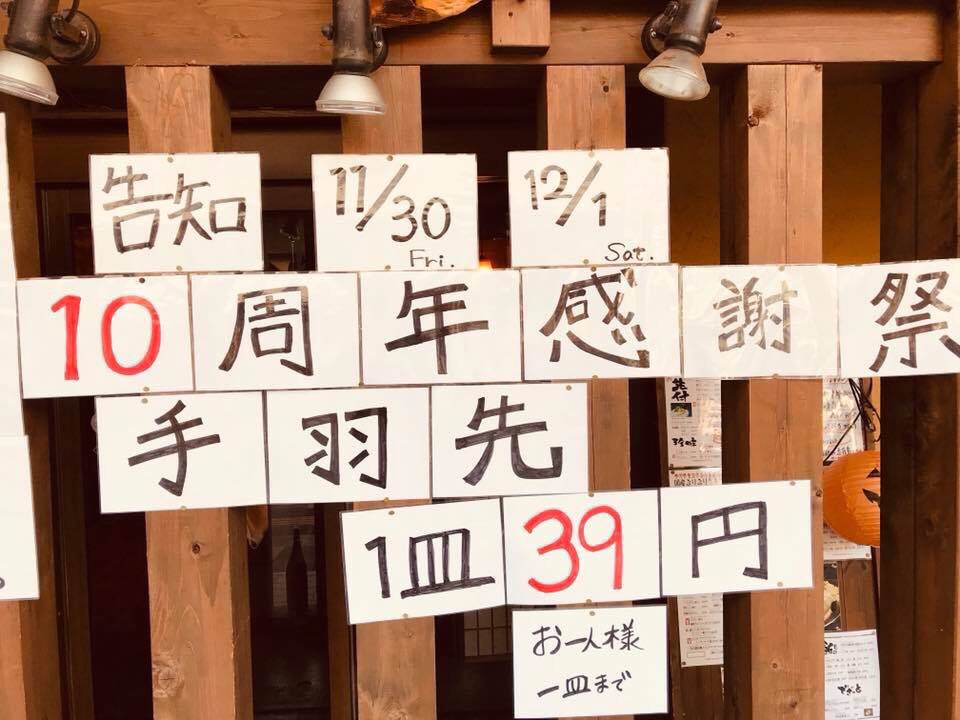 告知 11/30 Fri. 12/1 Sat.
10周年感謝祭
手羽先
1皿39円
お一人様
一皿まで